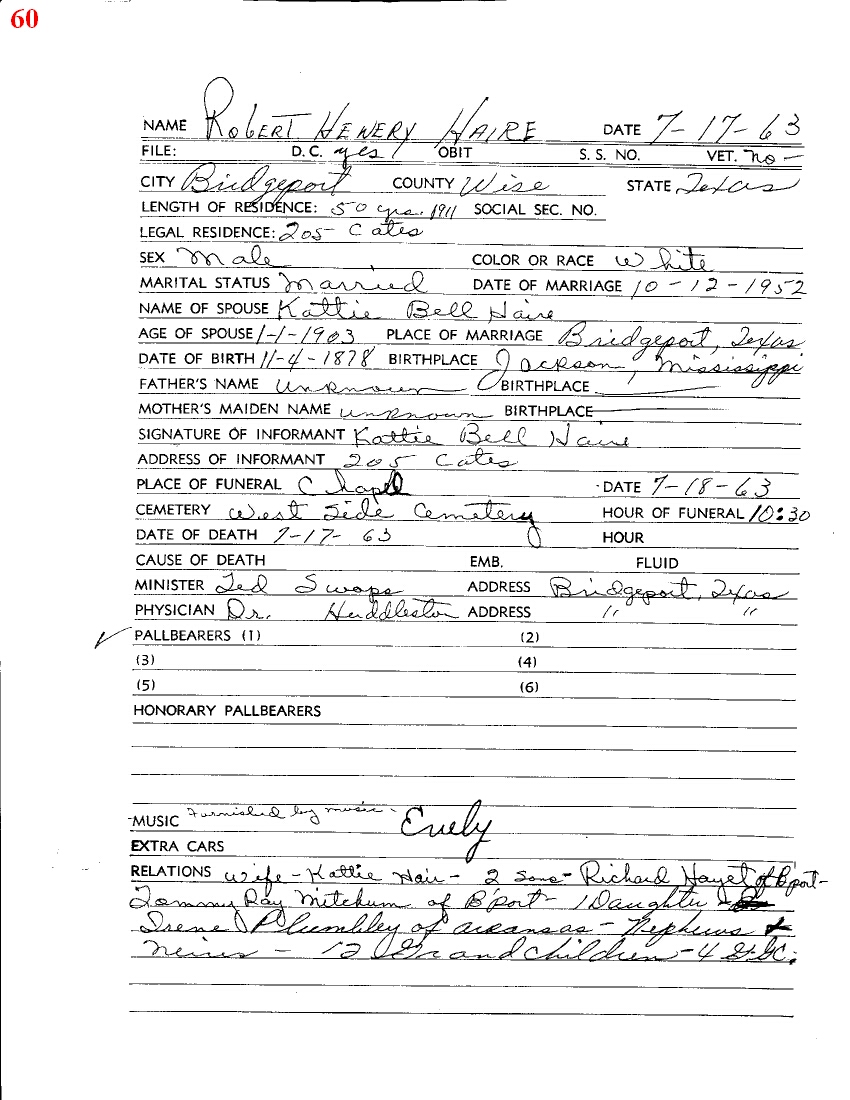 60
NAME Robert Henery Haire DATE 7-17-63
FILE: D.C. yes OBIT S. S. NO. VET. no -
CITY Bridgeport COUNTY Wise STATE Texas
LENGTH OF RESIDENCE: 50 yrs. 1911 SOCIAL SEC. NO.
LEGAL RESIDENCE: 205 Cates
SEX Male COLOR OR RACE White
MARITAL STATUS Married DATE OF MARRIAGE 10-12-1952
NAME OF SPOUSE Kattie Bell Haire
AGE OF SPOUSE 1-1-1903 PLACE OF MARRIAGE Bridgeport, Texas
DATE OF BIRTH 11-4-1878 BIRTHPLACE Jackson, Mississippi
FATHER'S NAME Unknown BIRTHPLACE
MOTHER'S MAIDEN NAME unknown BIRTHPLACE
SIGNATURE OF INFORMANT Kattie Bell Haire
ADDRESS OF INFORMANT 205 Cates
PLACE OF FUNERAL Chapel DATE 7-18-63
CEMETERY West Side Cemetery HOUR OF FUNERAL 10:30
DATE OF DEATH 7-17-63 HOUR
CAUSE OF DEATH EMB. FLUID
MINISTER Ted Swaps ADDRESS Bridgeport, Texas
PHYSICIAN Dr. Huddleston ADDRESS " "
PALLBEARERS (1) (2)
(3) (4)
(5) (6)
HONORARY PALLBEARERS
MUSIC Furnished by music -
EXTRA CARS
RELATIONS wife - Kattie Hair - 2 sons - Richard of B'port -
Tommy Ray Mitchum of B'port - 1 Daughter -
Irene Plumbley of arkansas - Nephews &
Neices - 12 Grandchildren - 4 G.G.C.